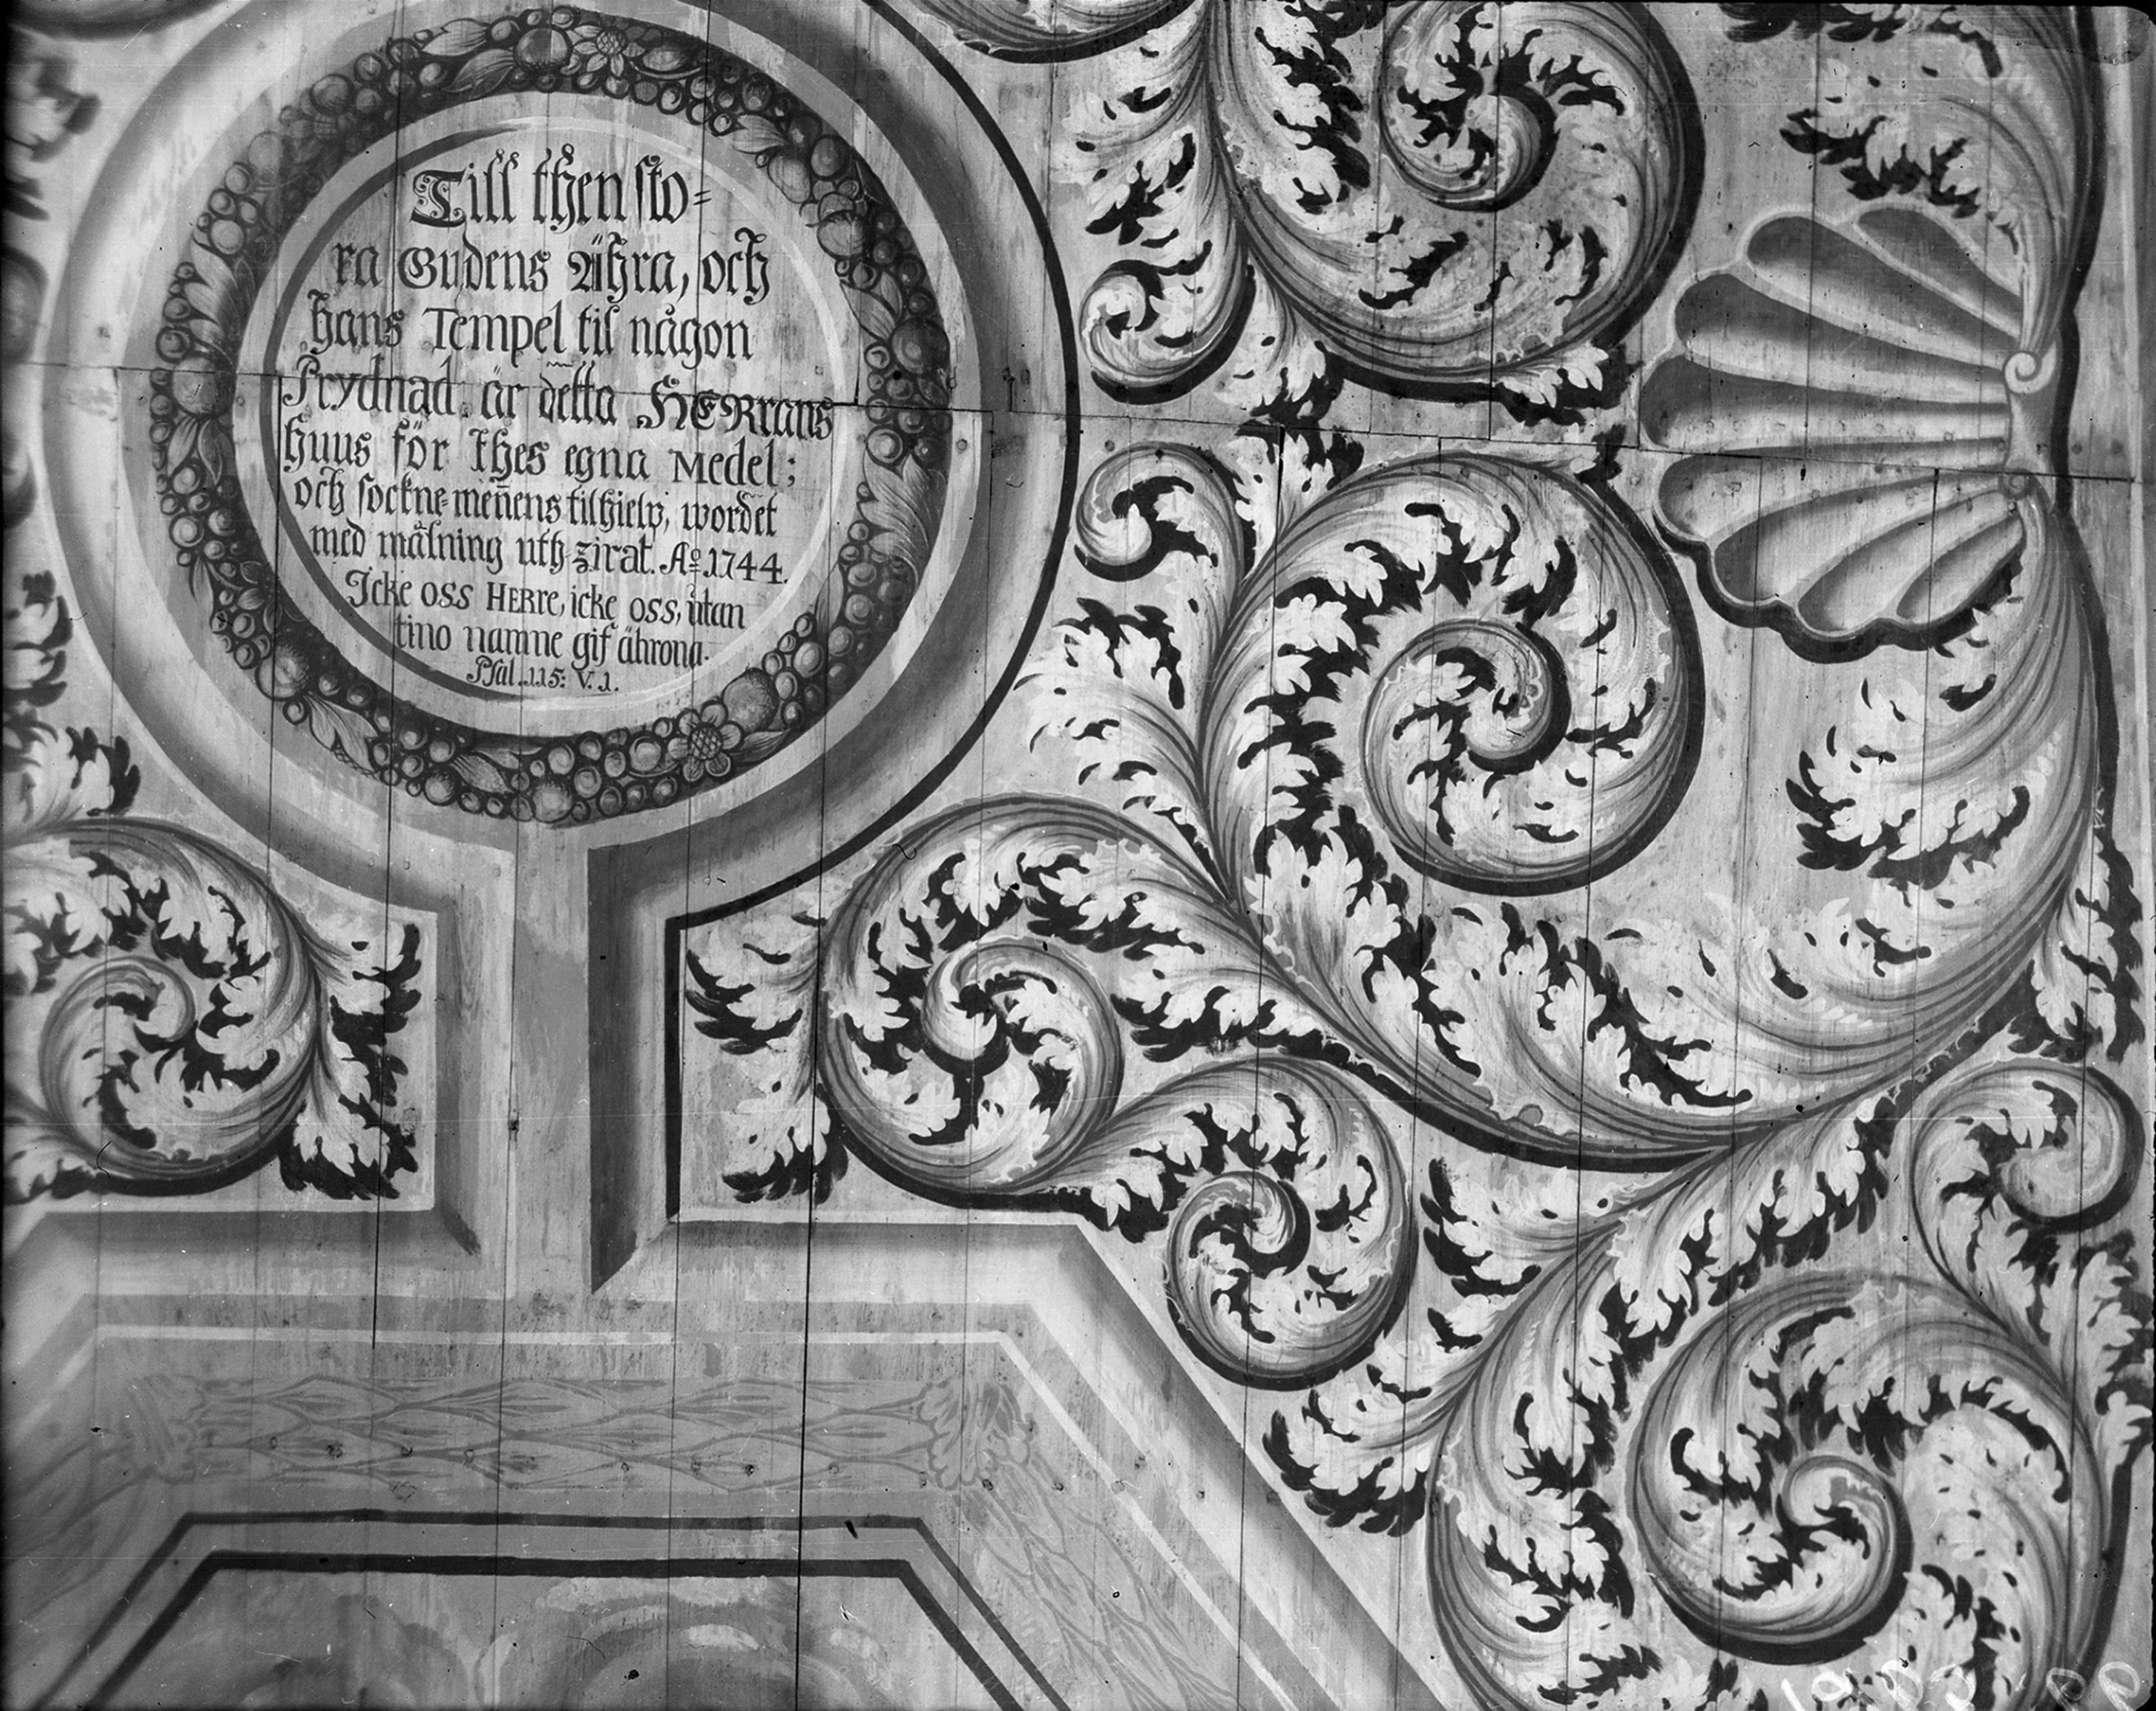 Till then sto=
ra Gudens Ähra, och
hans Tempel til någon
Prydnad. är detta HERrans
huus för thes egna Medel;
och sockne-men̄ens tilhielp, wordet
med målning uth-zirat. Ao. 1744.
Icke oss HERre, icke oss, utan
tino namne gif ährona.
Psal. 115: V. 1.